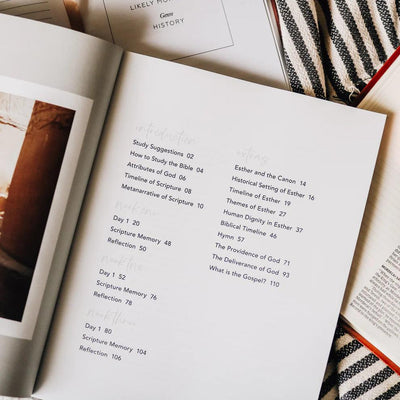 LIKELY HUMAN
Genre
HISTORY
introduction
Study Suggestions 02
How to Study the Bible 04
Attributes of God 06
Timeline of Scripture 08
Metanarrative of Scripture 10
week one
Day 1 20
Scripture Memory 48
Reflection 50
week two
Day 1 52
Scripture Memory 76
Reflection 78
week three
Day 1 80
Scripture Memory 104
Reflection 106
extras
Esther and the Canon 14
Historical Setting of Esther 16
Timeline of Esther 19
Themes of Esther 27
Human Dignity in Esther 37
Biblical Timeline 46
Hymn 57
The Providence of God 71
The Deliverance of God 93
What is the Gospel? 110